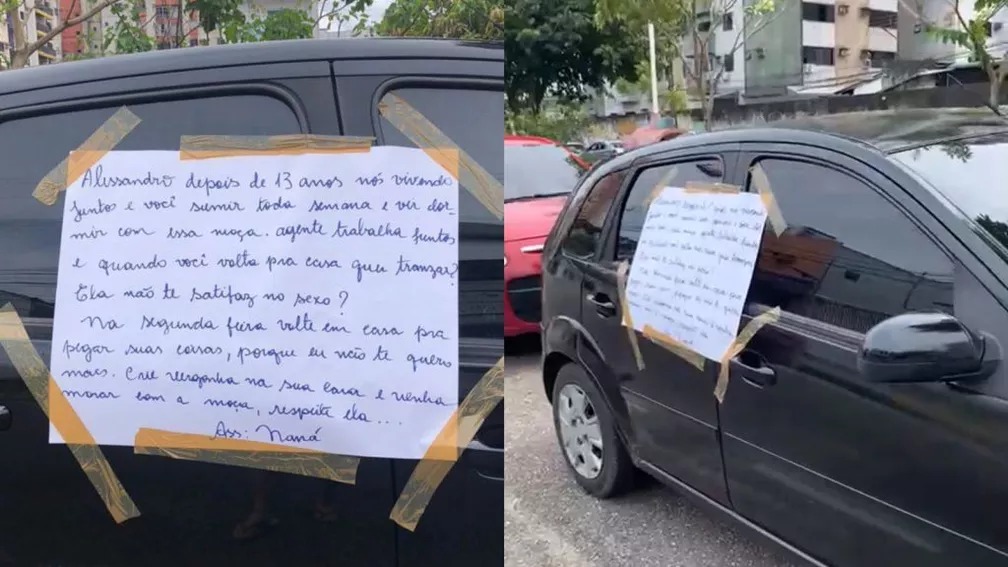 Alissandro depois de 13 anos nós vivendo
juntos e você sumir toda semana e vir dor-
mir com essa moça. agente trabalha juntos
e quando você volta pra casa quer transar?
Ela não te satifaz no sexo?
Na segunda feira volte em casa pra
pegar suas coisas, porque eu não te quero
mais. Crie vergonha na sua cara e venha
morar com a moça, respeite ela....
Ass: Naná